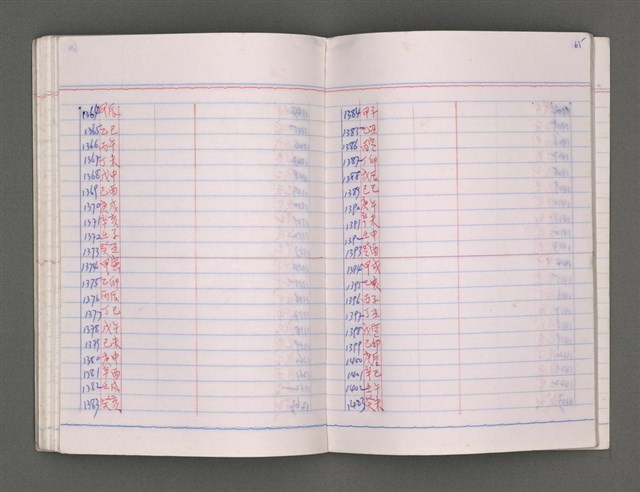 1364甲辰
1365乙巳
1366丙午
1367丁未
1368戊申
1369己酉
1370庚戌
1371辛亥
1372壬子
1373癸丑
1374甲寅
1375乙卯
1376丙辰
1377丁巳
1378戊午
1379己未
1380庚申
1381辛酉
1382壬戌
1383癸亥
65
1384甲子
1385乙丑
1386丙寅
1387丁卯
1388戊辰
1389己巳
1390庚午
1391辛未
1392壬申
1393癸酉
1394甲戌
1395乙亥
1396丙子
1397丁丑
1398戊寅
1399己卯
1400庚辰
1401辛巳
1402壬午
1403癸未